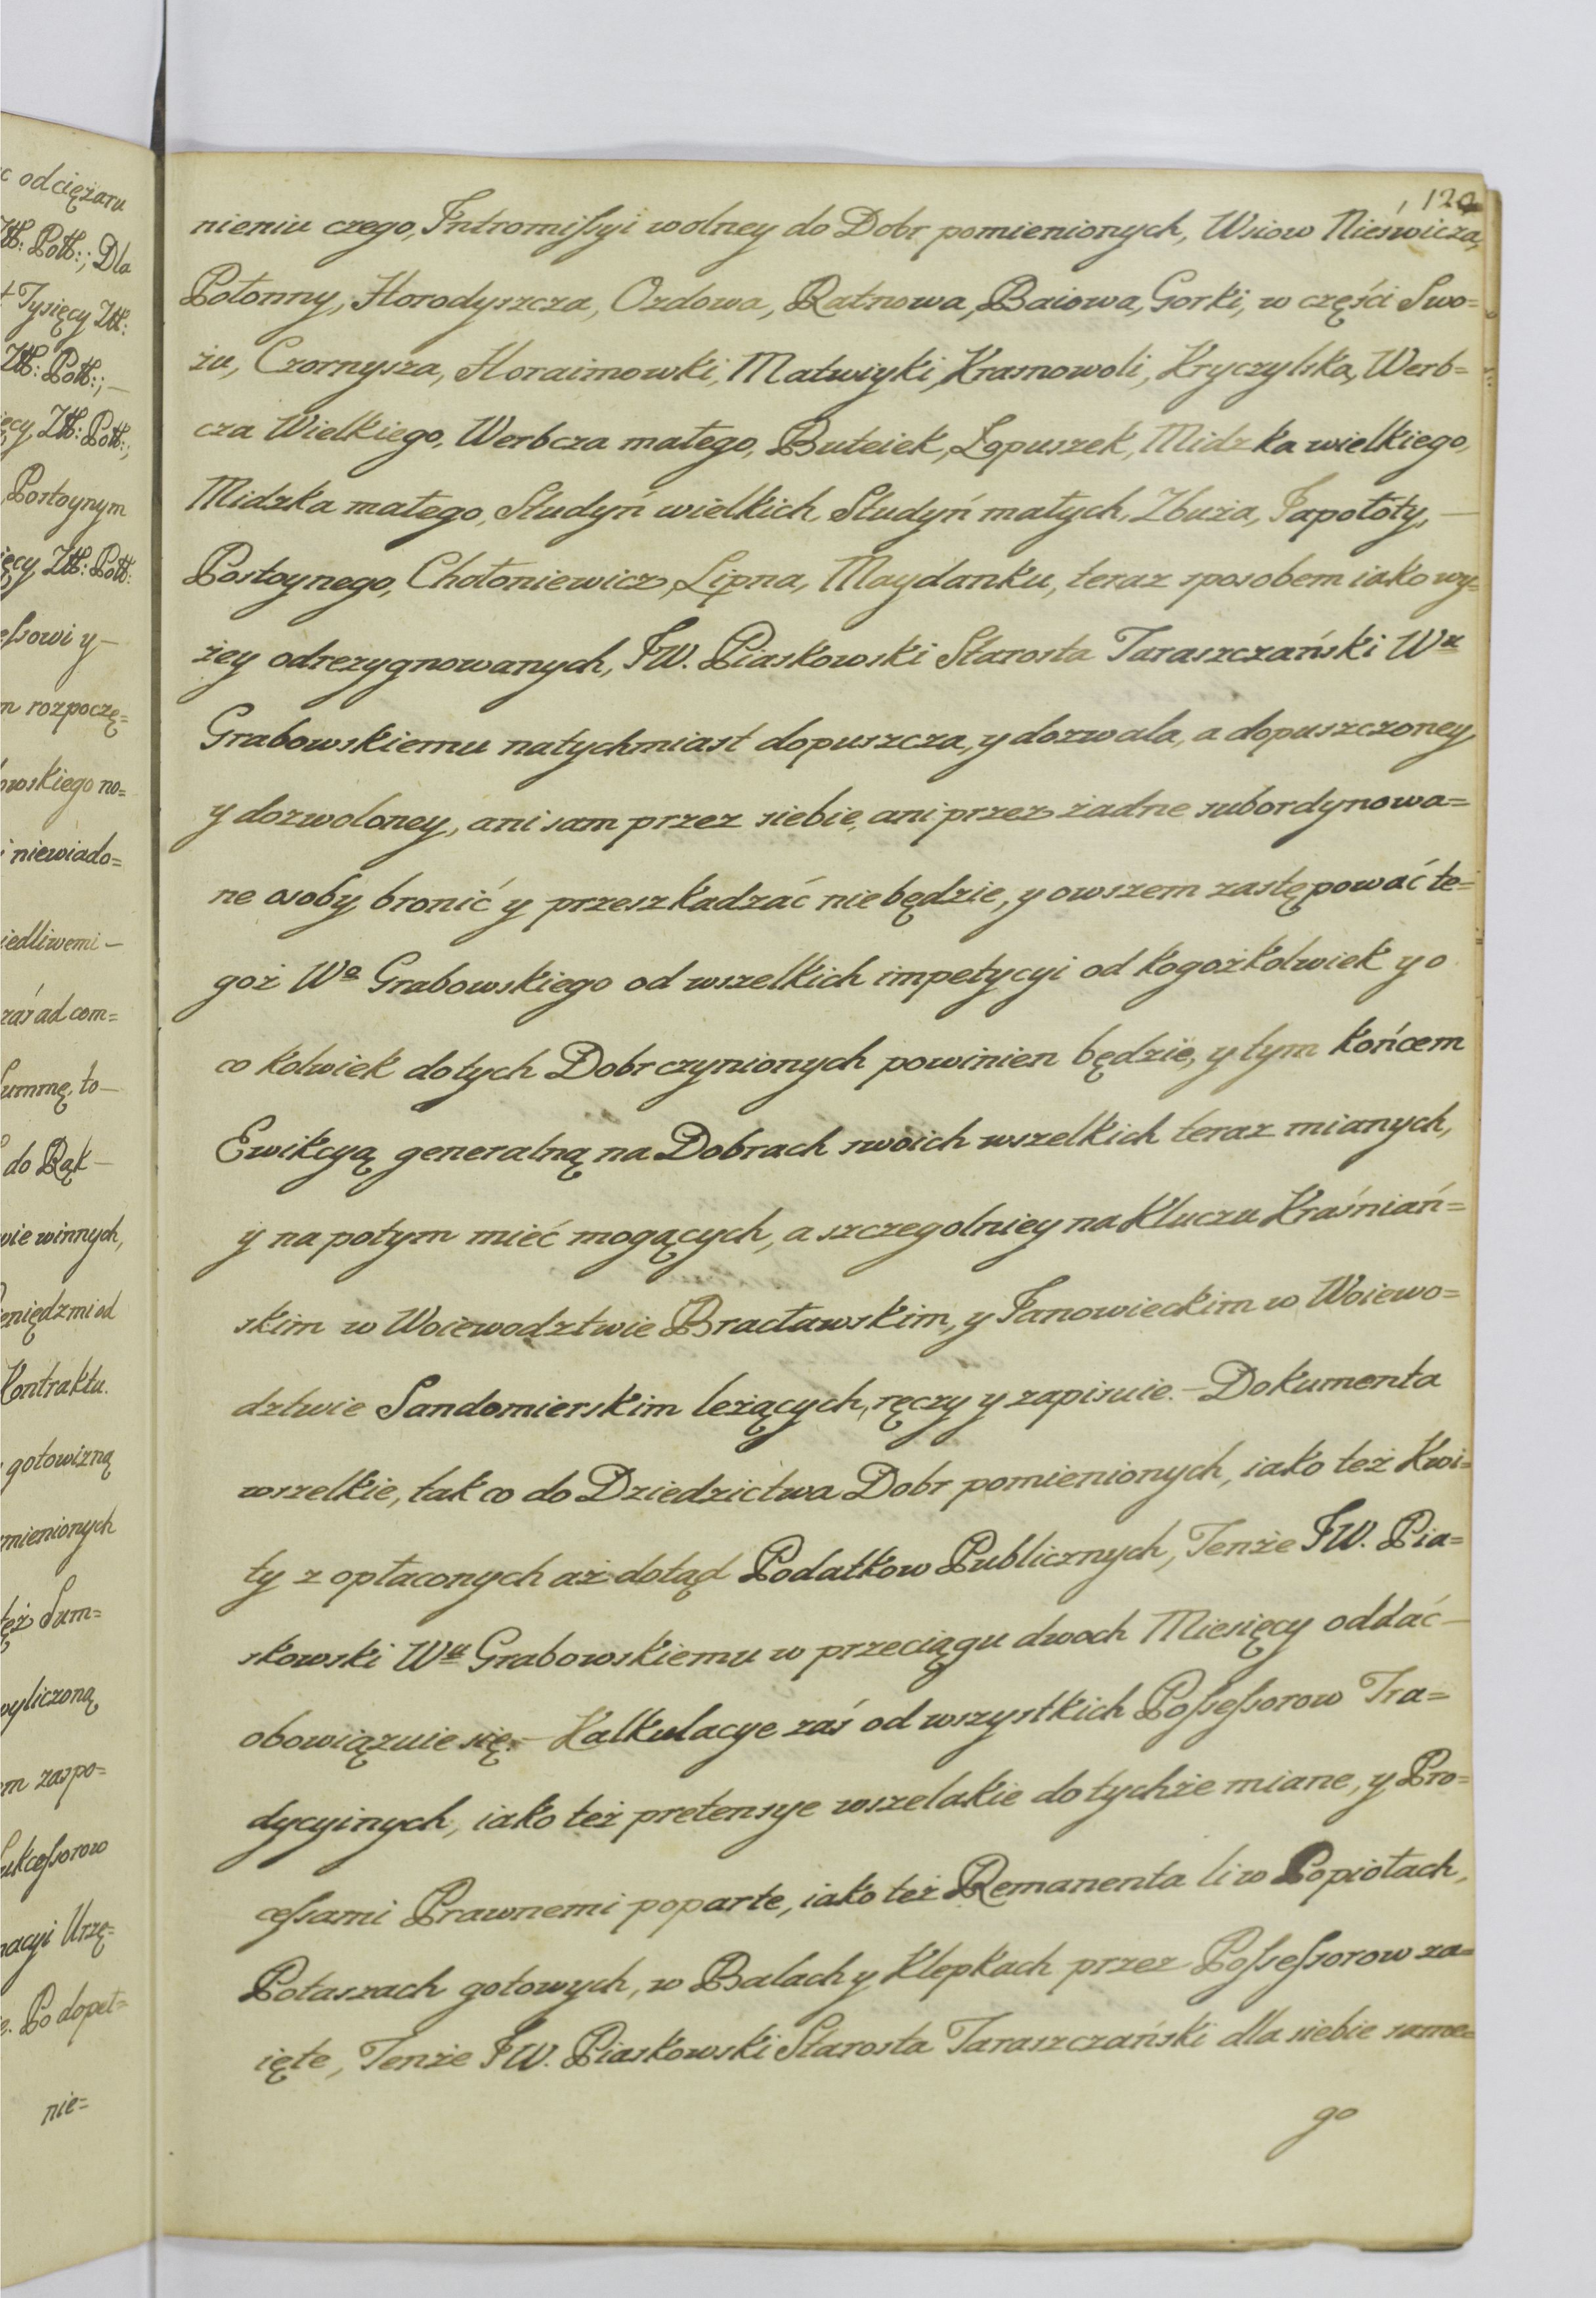 c odciężaru
Zł: Pol:; Dla
Tysięcy Zł:
Zł: Pol:; —
ięcy Zł: Pol:;
Postoynym
ięcy Zł: Pol:
eſsowi y —
m rozpoczę=
owskiego no=
i niewiado=
iedliwemi —
zaś ad com=
Summę, to —
do Rąk —
wie winnych,
eniędzmi od
Kontraktu.
gotowizną
mienionych
też Sum=
wyliczoną
em zaspo=
ukceſsorow
nacyi Urzę=
e. Po dopeł=
nie=
120
nieniu czego, Intromiſsyi wolney do Dobr pomienionych, Wsiow Nieświcza,
Połonny, Horodyszcza, Ozdowa, Ratnowa, Baiowa, Gorki, w części Swo=
zu, Czornysza, Horaimowki, Matwiyki, Krasnowoli, Kryczylska, Werb=
cza Wielkiego, Werbcza małego, Buteiek, Lopuszek, Midzka wielkiego,
Midzka małego, Studyń wielkich, Studyń małych, Zbuża, Japołoty, —
Postoynego, Chołoniewicz, Lipna, Maydanku, teraz sposobem iako wy=
żey odrezygnowanych, JW. Piaskowski Starosta Taraszczański Wu
Grabowskiemu natychmiast dopuszcza, y dozwala, a dopuszczoney
y dozwoloney, ani sam przez siebie, ani przez żadne subordynowa=
ne osoby bronić y przeszkadzać nie będzie, y owszem zastępować te=
goż Wo Grabowskiego od wszelkich impetycyi od kogożkolwiek y o
co kolwiek do tych Dobr czynionych powinien będzie, y tym końcem
Ewikcyą generalną na Dobrach swoich wszelkich teraz mianych,
y na potym mieć mogących, a szczegolniey na Kluczu Kraśniań=
skim w Woiewodztwie Bracławskim, y Janowieckim w Woiewo=
dztwie Sandomierskim leżących, ręczy y zapisuie. — Dokumenta
wszelkie, tak co do Dziedzictwa Dobr pomienionych, iako też Kwi=
ty z opłaconych aż dotąd Podatkow Publicznych, Tenże JW. Pia=
skowski Wu Grabowskiemu w przeciągu dwoch Miesięcy oddać —
obowiązuie się. — Kalkulacye zaś od wszystkich Poſseſsorow Tra=
dycyinych, iako też pretensye wszelakie do tychże miane, y Pro=
ceſsami Prawnemi poparte, iako też Remanenta li w Popiołach,
Potaszach gotowych, w Balach y Klepkach przez Poſseſsorow za=
ięte, Tenże JW. Piaskowski Starosta Taraszczański dla siebie same=
go